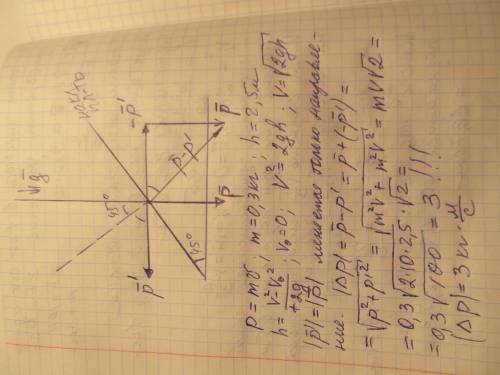 g̅
45°
-p̅'
p̅'
p̅-p̅'
p̅
p̅
45°
p = mv; m=0,3кг; h=2,5м
h = (V²-V₀²)/(+2g); V₀=0; V²=2gh; V=√(2gh)
|p̅'|=|p̅| меняется только направле-
ние. |Δp|=p̅-p̅'=p̅+(-p̅')=
=√(p²+p'²) = √(m²V²+m²V²) = mV√2 =
=0,3√(2·10·2,5)·√2=
=0,3√100 = 3 !!!
|Δp|=3 кг·м/с